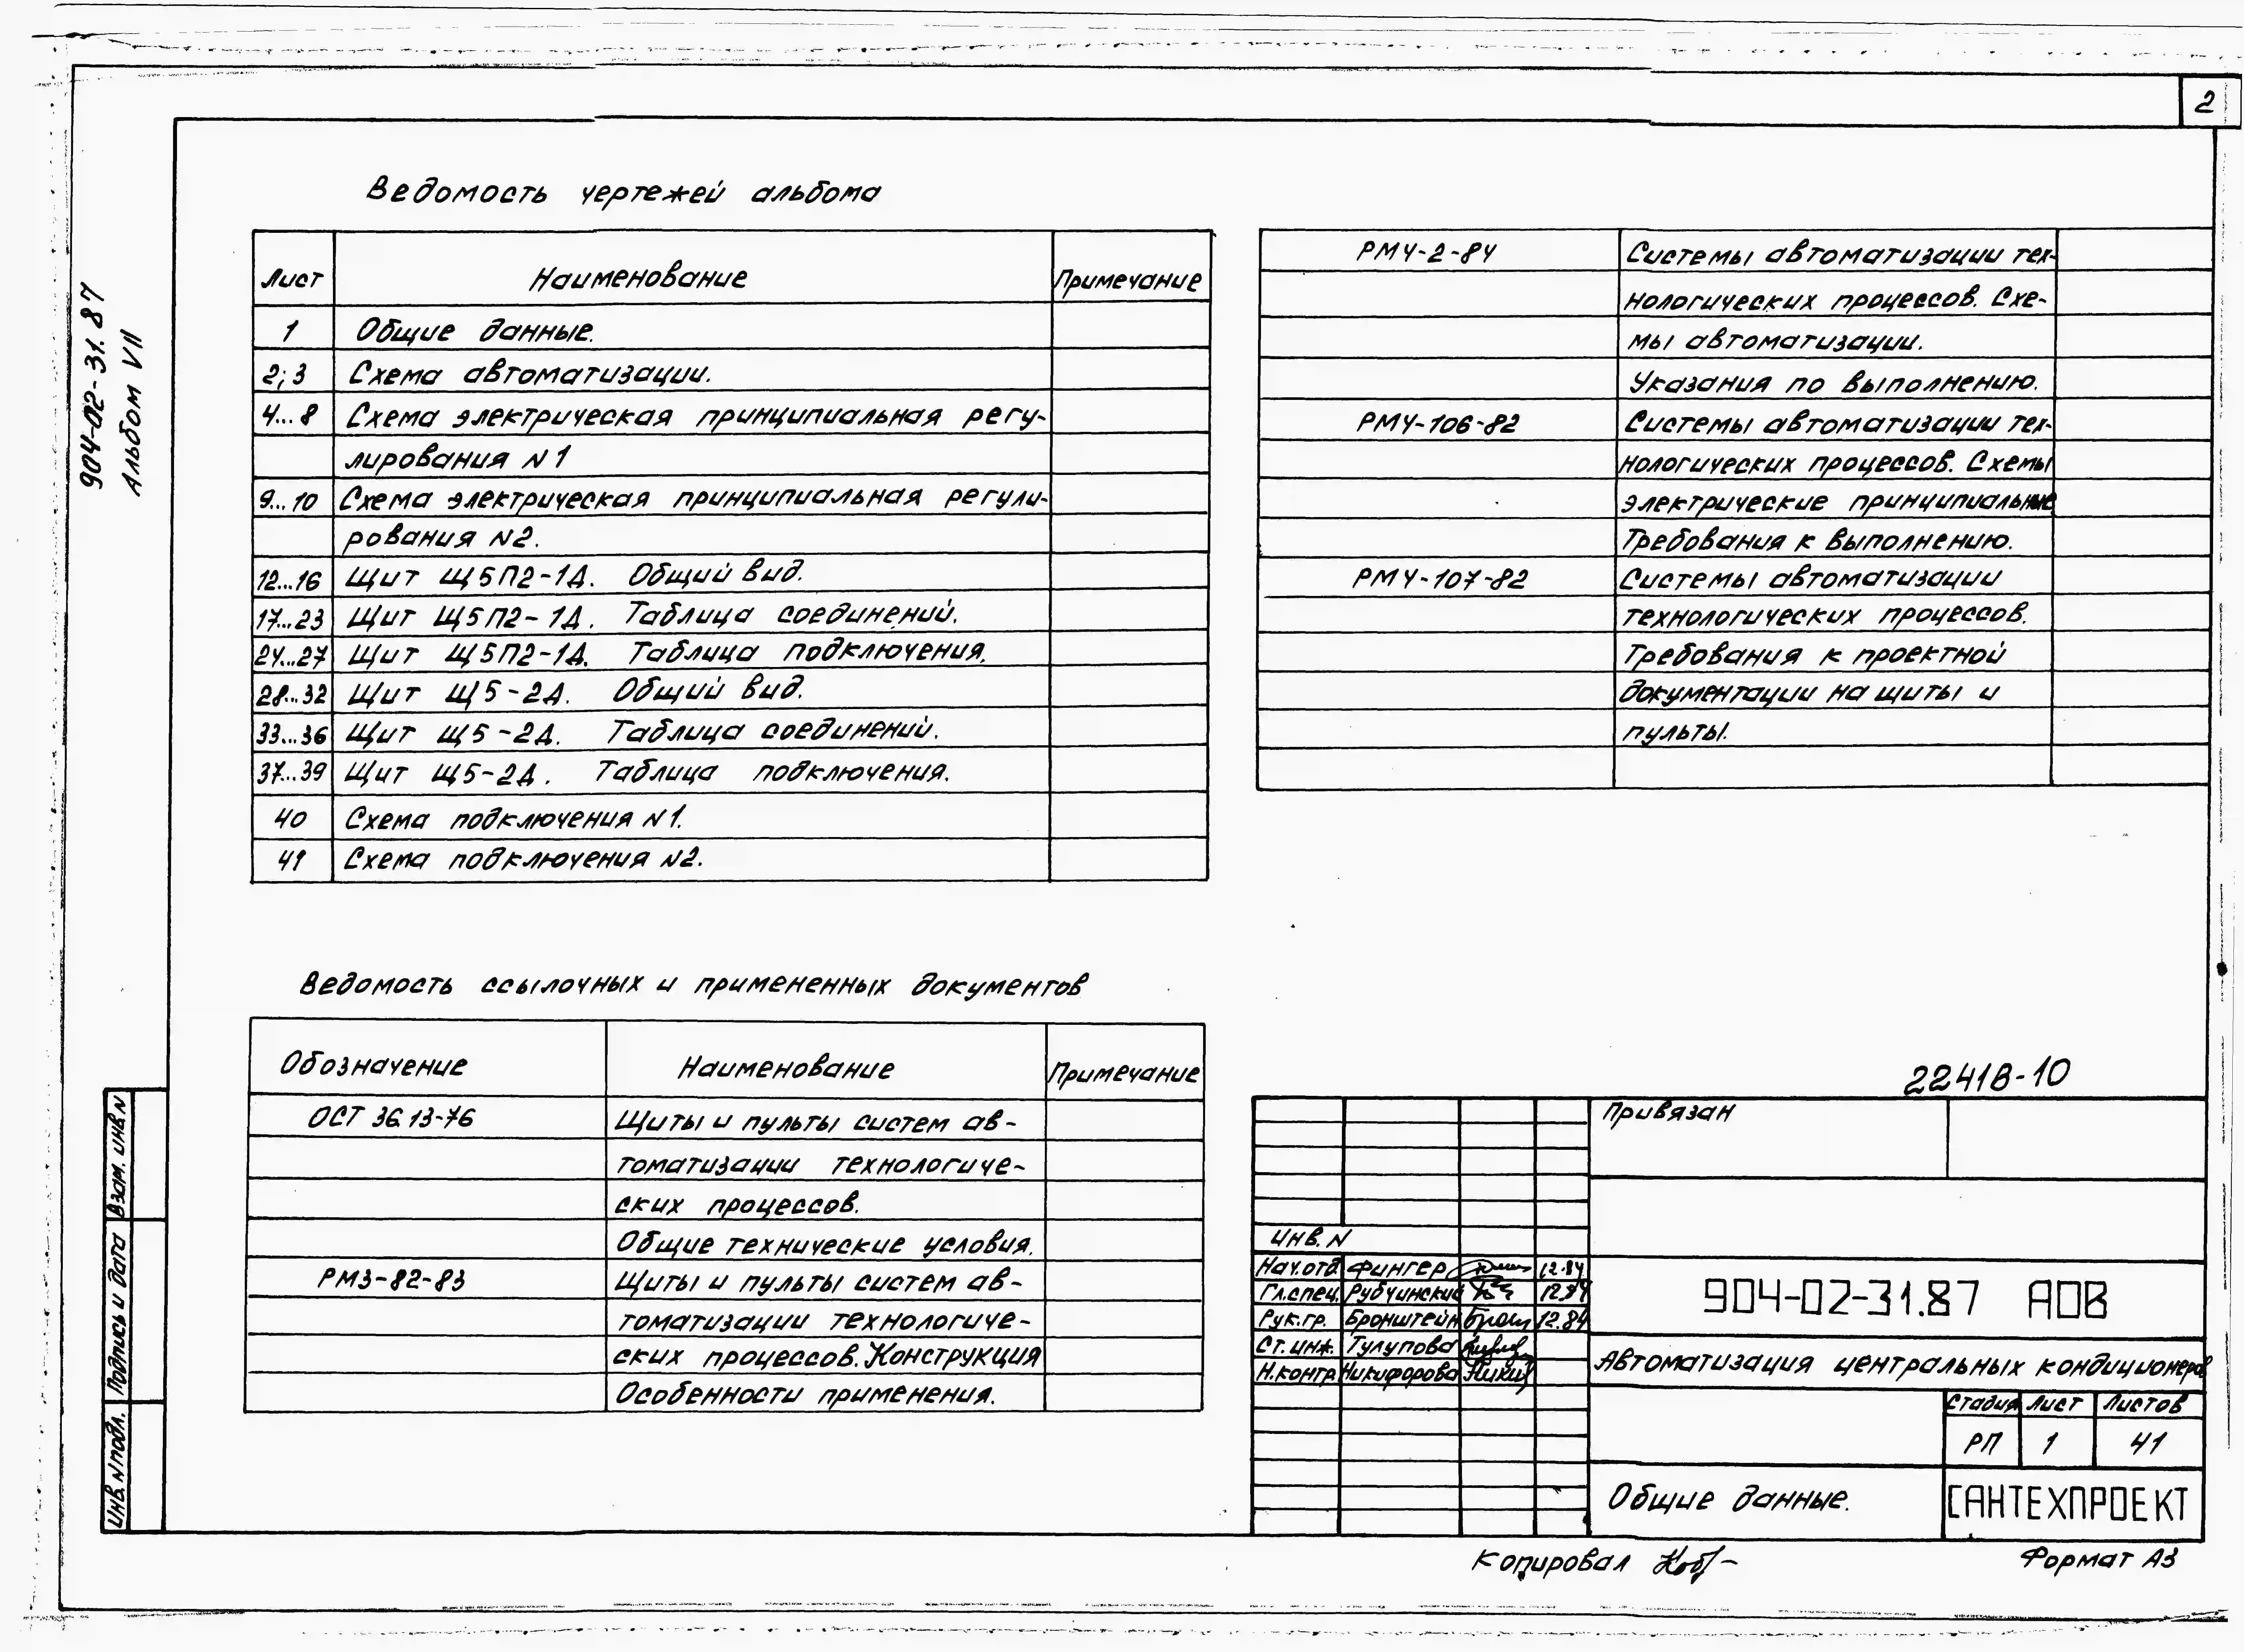 2
904-02-31.87
Альбом VII
Ведомость чертежей альбома
Лист Наименование Примечание
1 Общие данные.
2;3 Схема автоматизации.
4...8 Схема электрическая принципиальная регу-
лирования N1
9...10 Схема электрическая принципиальная регули-
рования N2.
12...16 Щит Щ5П2-1Д. Общий вид.
17...23 Щит Щ5П2-1Д. Таблица соединений.
24...27 Щит Щ5П2-1Д. Таблица подключения.
28...32 Щит Щ5-2Д. Общий вид.
33...36 Щит Щ5-2Д. Таблица соединений.
37...39 Щит Щ5-2Д. Таблица подключения.
40 Схема подключения N1.
41 Схема подключения N2.
Ведомость ссылочных и примененных документов
Обозначение Наименование Примечание
ОСТ 36.13-76 Щиты и пульты систем ав-
томатизации технологиче-
ских процессов.
Общие технические условия.
РМ3-82-83 Щиты и пульты систем ав-
томатизации технологиче-
ских процессов. Конструкция
Особенности применения.
РМ4-2-84 Системы автоматизации тех-
нологических процессов. Схе-
мы автоматизации.
Указания по выполнению.
РМ4-106-82 Системы автоматизации тех-
нологических процессов. Схемы
электрические принципиальные
Требования к выполнению.
РМ4-107-82 Системы автоматизации
технологических процессов.
Требования к проектной
документации на щиты и
пульты.
22418-10
Привязан
Инв. N
Нач.отд. Фингер 12.84
Гл.спец. Рубчинский 12.84
Рук.гр. Бронштейн 12.84
Ст.инж. Тулупова
Н.контр. Никифорова
904-02-31.87 АОВ
Автоматизация центральных кондиционеров
Стадия Лист Листов
РП 1 41
Общие данные.
САНТЕХПРОЕКТ
Взам. инв. N
Подпись и дата
Инв. N подл.
Копировал
Формат А3